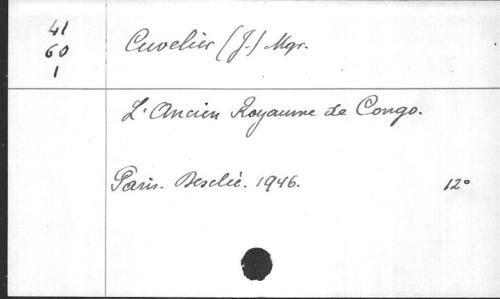 41
60
1
Cuvelier (J.) Mgr.
L'Ancien Royaume de Congo.
Paris. Desclée. 1946. 12°